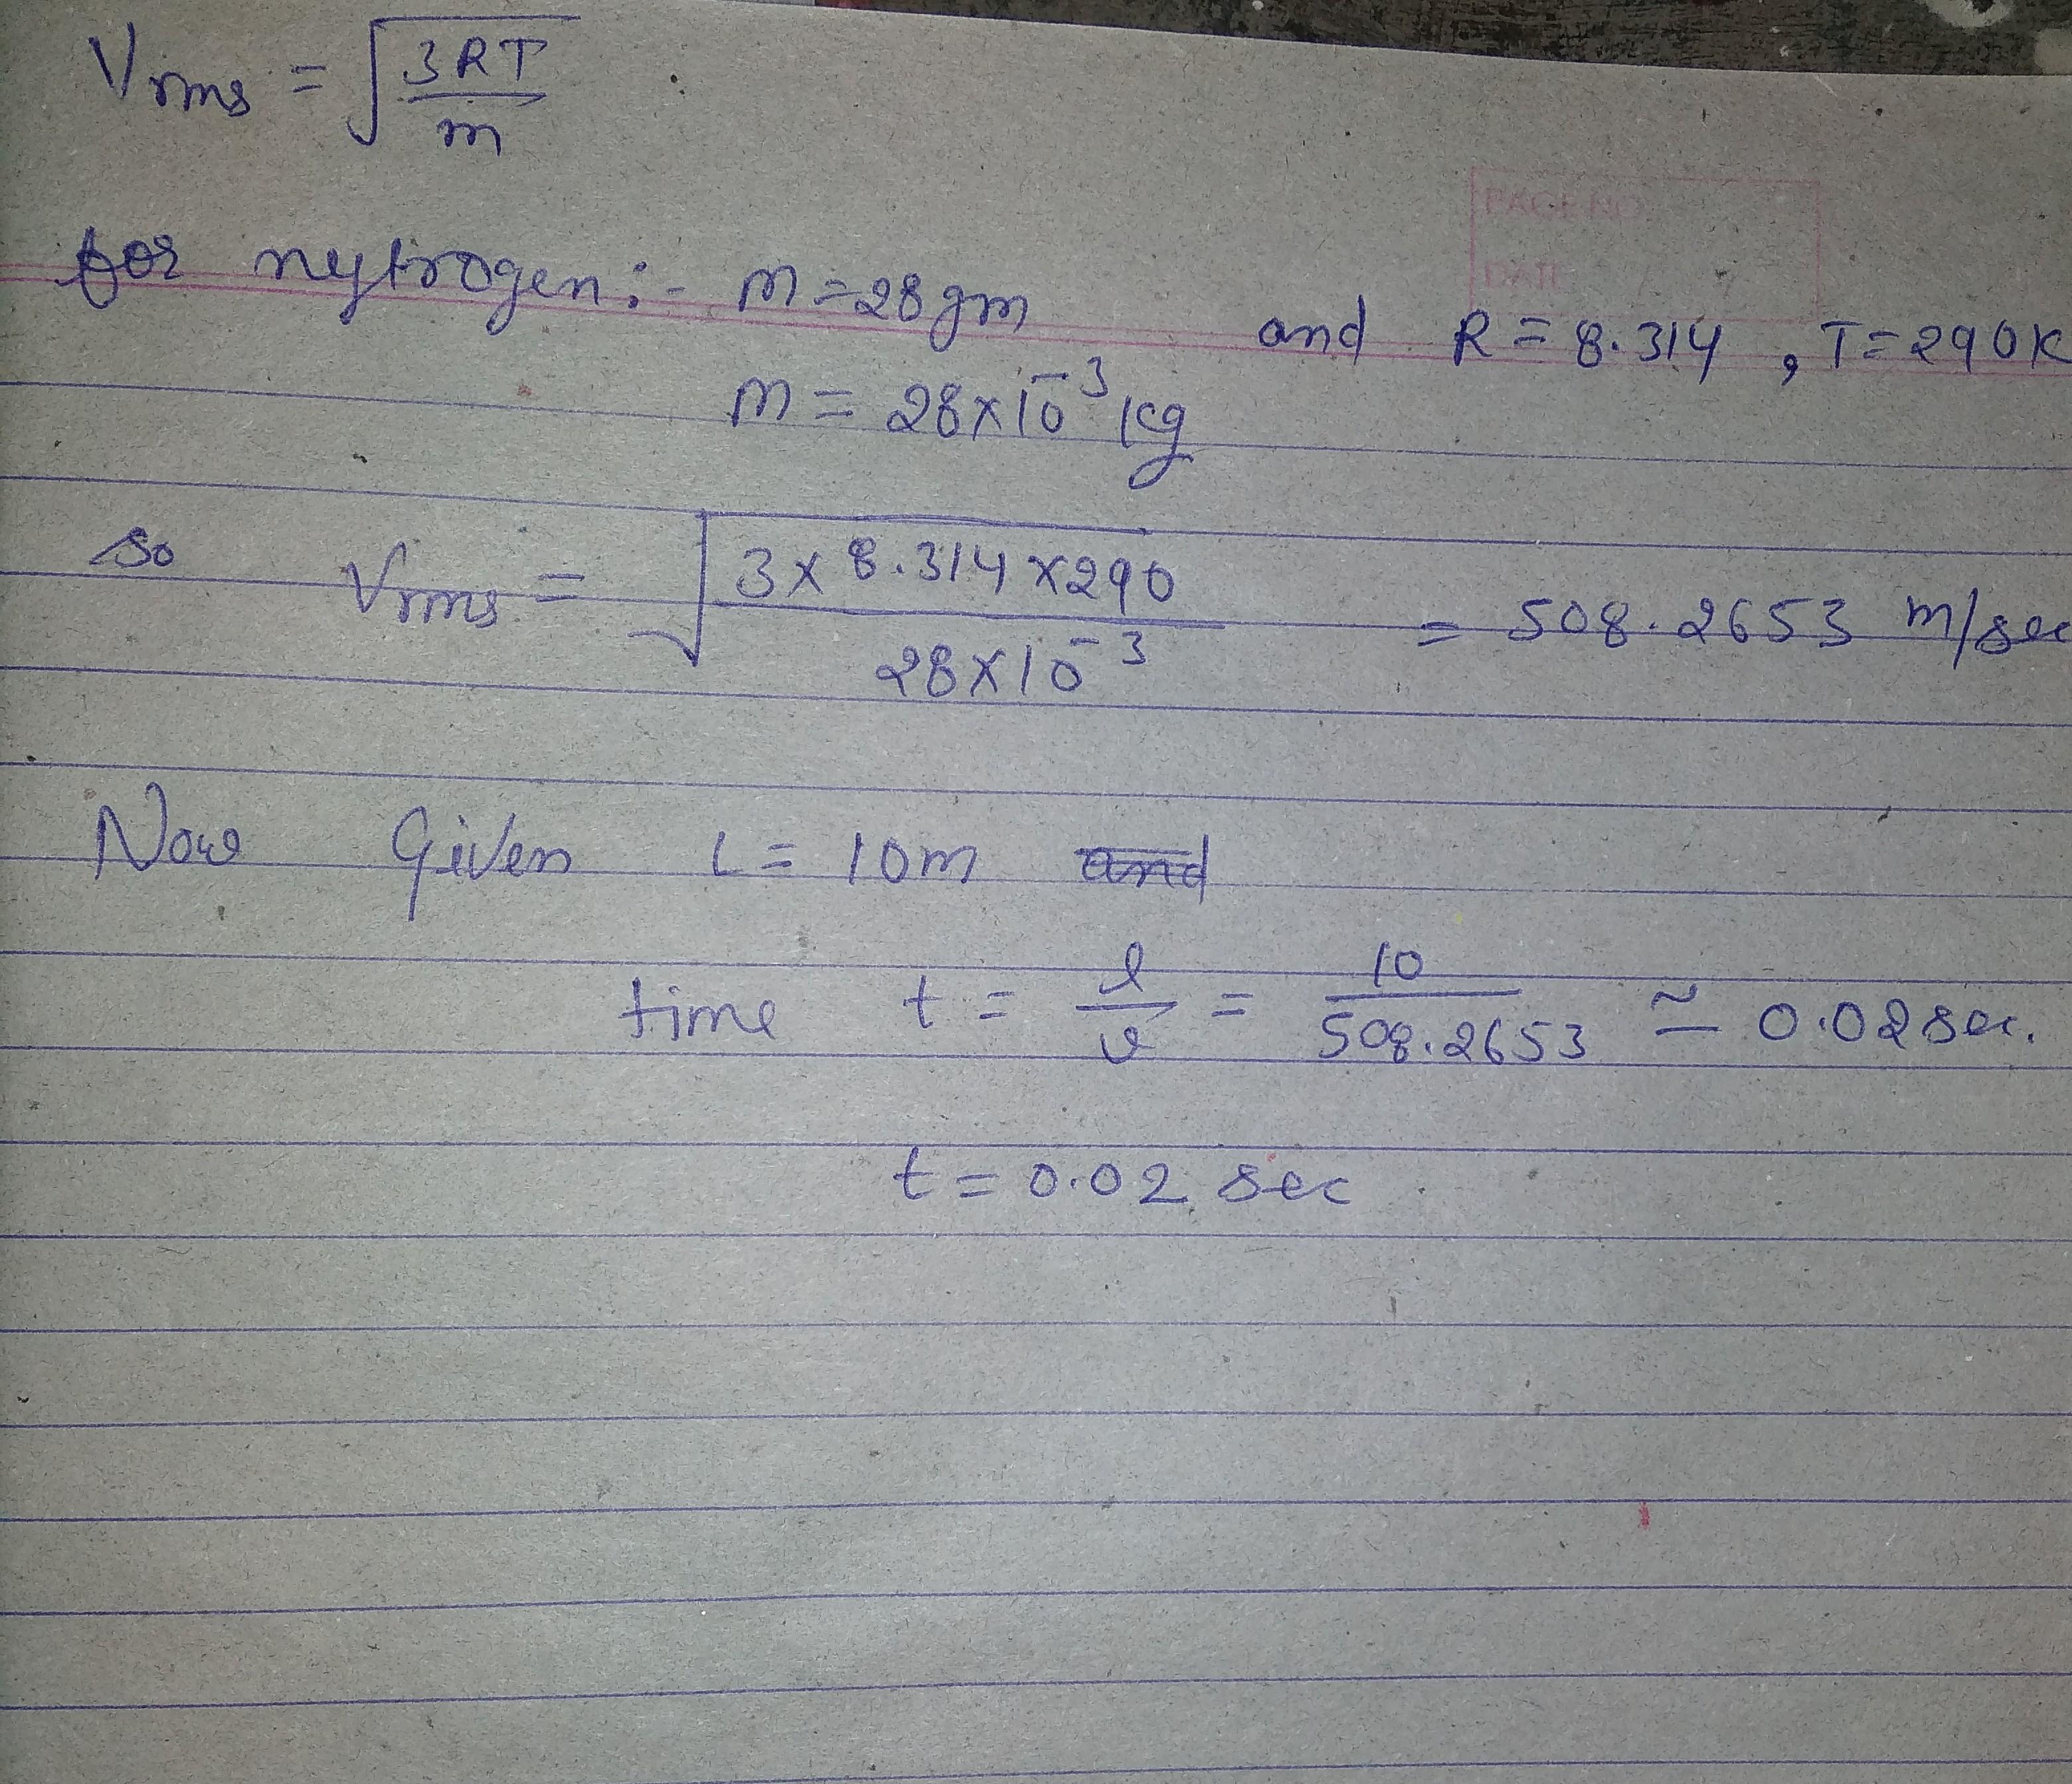 Vrms = √(3RT/m)
PAGE NO
DATE / /
for nytrogen :- m = 28 gm and R = 8.314 , T = 290K
m = 28×10⁻³ kg
so Vrms = √(3×8.314×290/28×10⁻³) = 508.2653 m/sec
Now Given l = 10m and
time t = l/v = 10/508.2653 ≃ 0.02 sec.
t = 0.02 sec